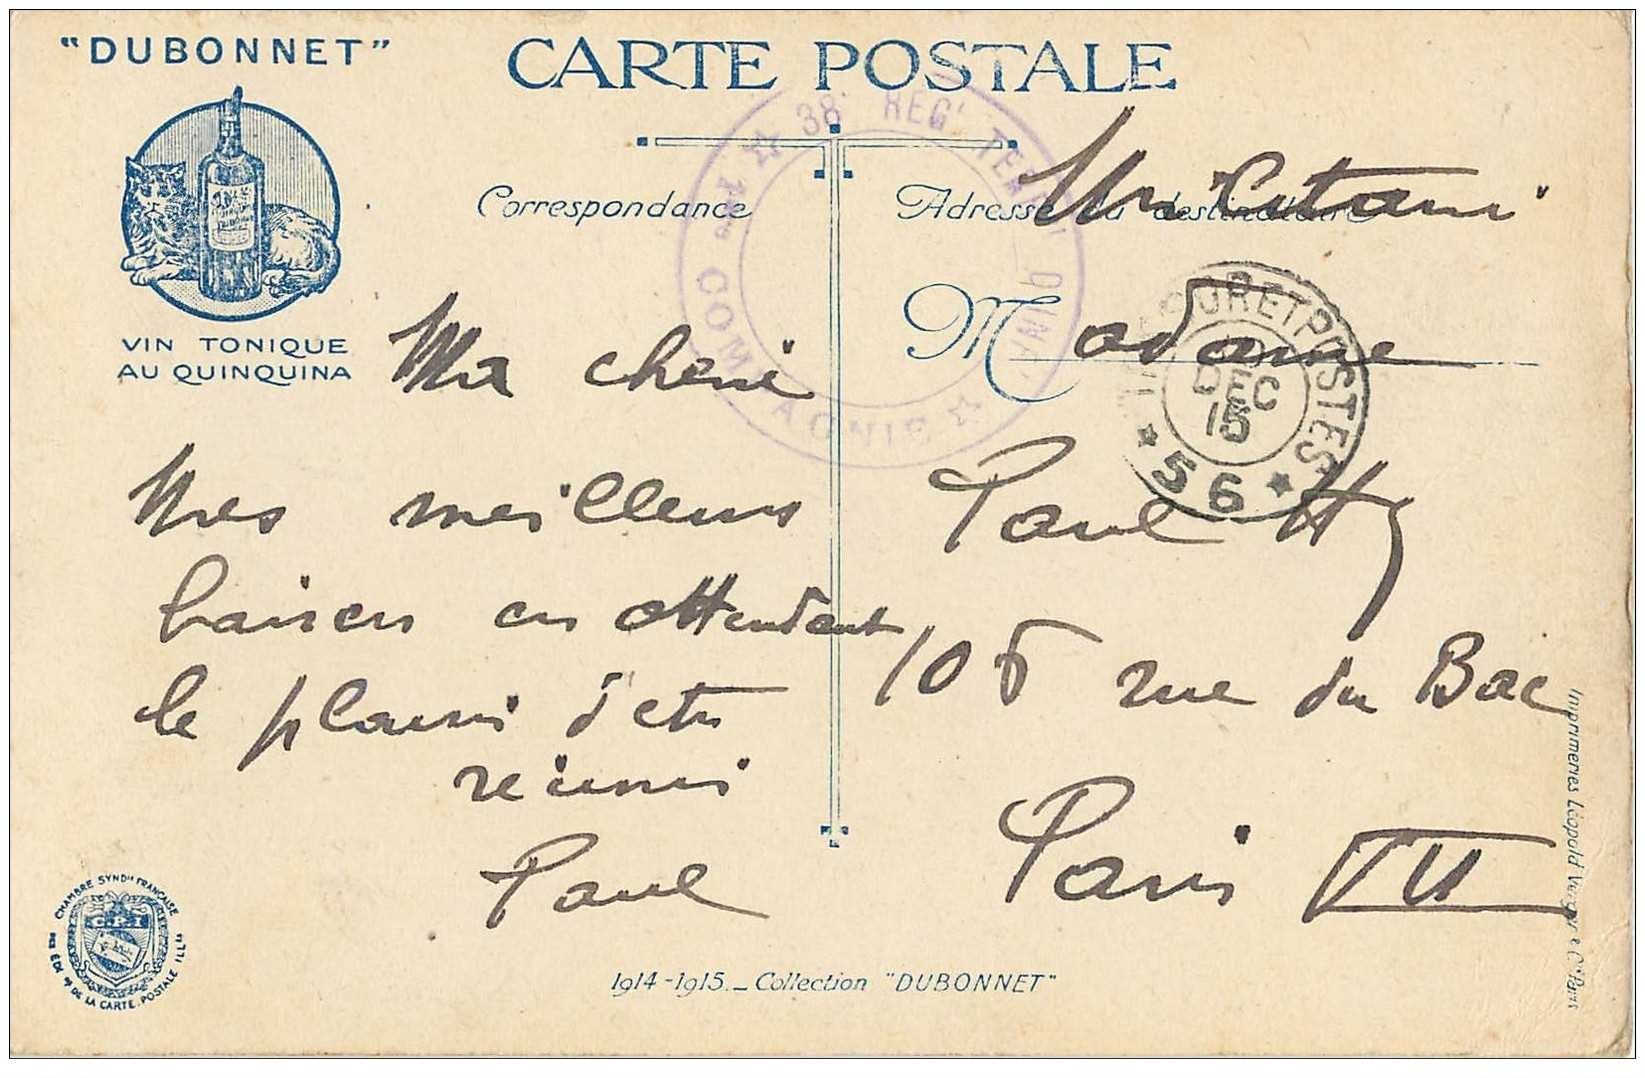 "DUBONNET"
CARTE POSTALE
VIN TONIQUE
AU QUINQUINA
Correspondance
Adresse du destinataire
★ 38e REGt TERRal D'INFie ★ 1re COMPAGNIE
TRESOR ET POSTES
DEC
15
★ 56 ★
Ma cherie
Mes meilleurs
baisers en attendant
le plaisir d'etre
reunis
Paul
Madame
Paul
108 rue du Bac
Paris VII
CHAMBRE SYNDle FRANÇAISE
DE LA CARTE POSTALE ILLée
C.P.I
1914-1915._ Collection "DUBONNET"
Imprimeries Léopold Verger & Cie Paris